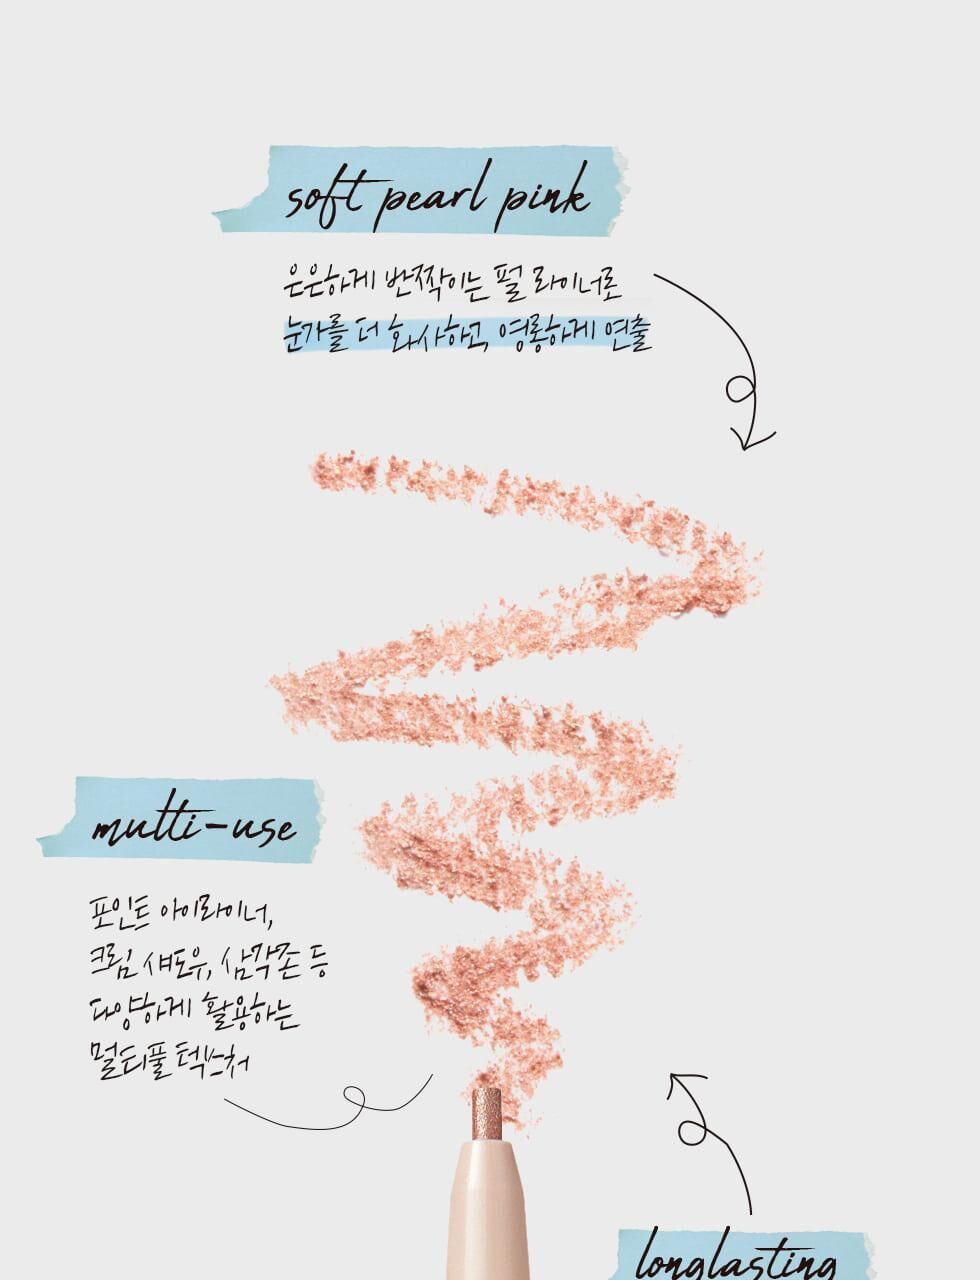 soft pearl pink
은은하게 반짝이는 펄 라이너로
눈가를 더 화사하고, 영롱하게 연출
multi-use
포인트 아이라이너,
크림 섀도우, 삼각존 등
다양하게 활용하는
멀티풀 텍스처
longlasting